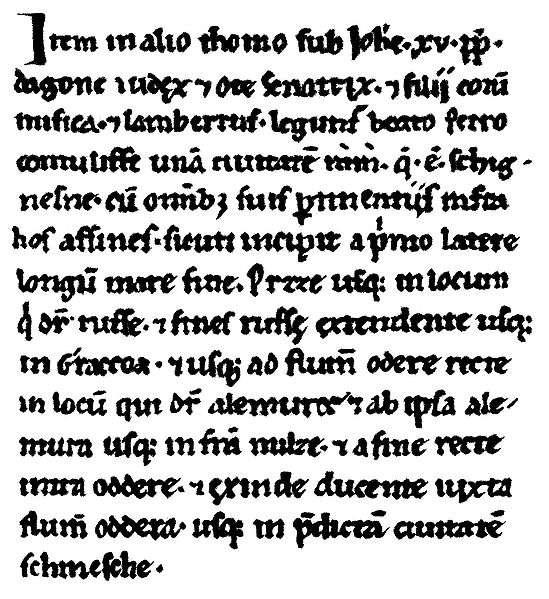 Item in alio thomo sub Joħe. xv. p̄p̄.
dagone iudex ⁊ Ote senatrix. ⁊ filii eorū
misica. ⁊ lambertus. legunt᷑ beato petro
contulisse unā ciuitatē in īn̄. q̄. ē. schig-
nesne. cū om̄ib; suis ꝑtinentiis infra
hos affines. sicuti incipit a p̍mo latere
longū mare fine. Pruzze usq; in locum
q̍ dr̄ russe. ⁊ fines russę extendente usq;
in Craccoa. ⁊ usq; ad flum̄ odere recte
in locū qui dr̄ alemure ⁊ ab ipsa ale-
mura usq; in frā milze. ⁊ a fine recte
intra oddere. ⁊ exinde ducente iuxta
flum̄ oddera. usq; in p̄dictā ciuitatē
schinesche.